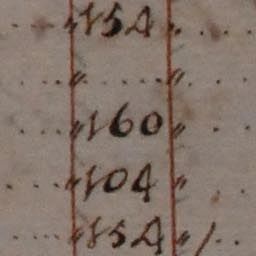 ....„154„....
....„ „....
....„160„....
....„104„....
....„154„/...